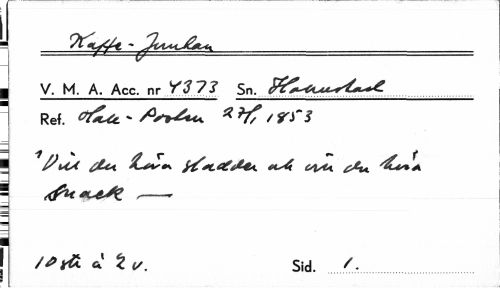 Kaffe-Junkan
V. M. A. Acc. nr 4373 Sn. Halmstad
Ref. Hall-Posten 27/1, 1853
"Vill du höra sladder och vill du höra
snack —
10 str à 2 v. Sid. 1.